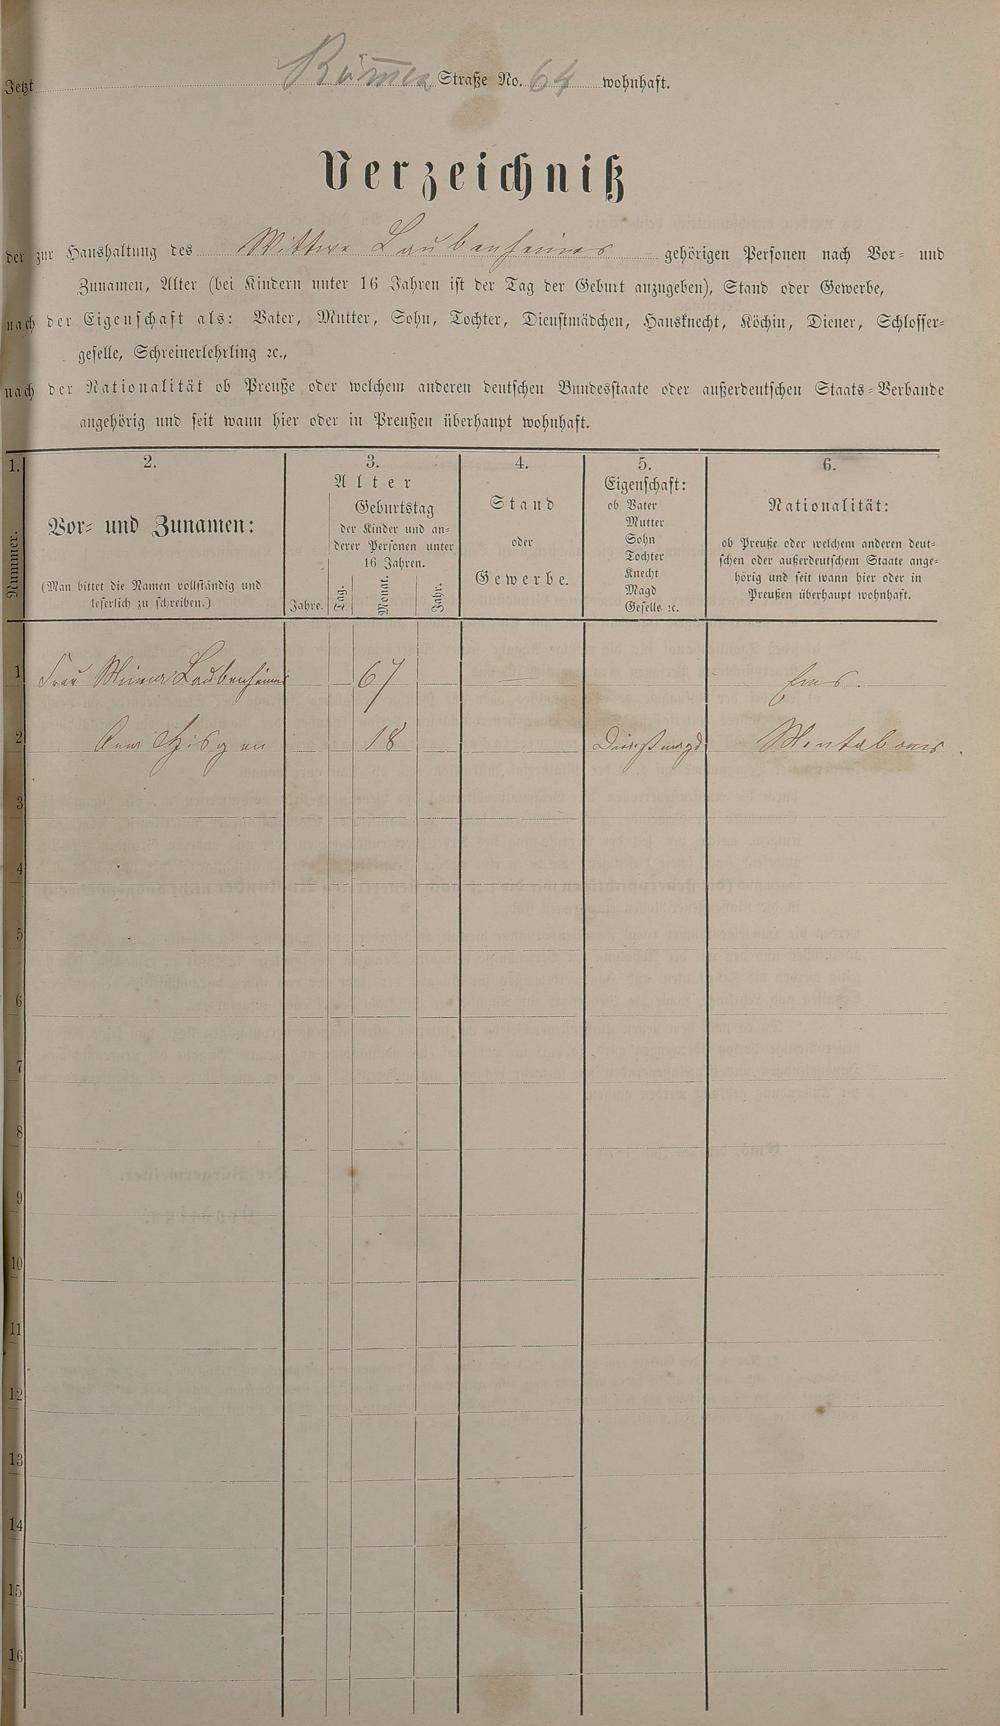 Jetzt Römer Straße No. 64 wohnhaft.
Verzeichniß
der zur Haushaltung des Wittwe Laubenheimer gehörigen Personen nach Vor- und
Zunamen, Alter (bei Kindern unter 16 Jahren ist der Tag der Geburt anzugeben), Stand oder Gewerbe,
nach der Eigenschaft als: Vater, Mutter, Sohn, Tochter, Dienstmädchen, Hausknecht, Köchin, Diener, Schlosser-
geselle, Schreinerlehrling ꝛc.,
nach der Nationalität ob Preuße oder welchem anderen deutschen Bundesstaate oder außerdeutschen Staats-Verbande
angehörig und seit wann hier oder in Preußen überhaupt wohnhaft.
1.
Nummer.
2.
Vor- und Zunamen:
(Man bittet die Namen vollständig und
leserlich zu schreiben.)
3.
Alter
Jahre.
Geburtstag
der Kinder und an-
derer Personen unter
16 Jahren.
Tag.
Monat.
Jahr.
4.
Stand
oder
Gewerbe.
5.
Eigenschaft:
ob Vater
Mutter
Sohn
Tochter
Knecht
Magd
Geselle ꝛc.
6.
Nationalität:
ob Preuße oder welchem anderen deut-
schen oder außerdeutschem Staate ange-
hörig und seit wann hier oder in
Preußen überhaupt wohnhaft.
1 Frau Laubenheimer 67 — Ems.
2 18 Dienstmagd Montabaur.
3
4
5
6
7
8
9
10
11
12
13
14
15
16